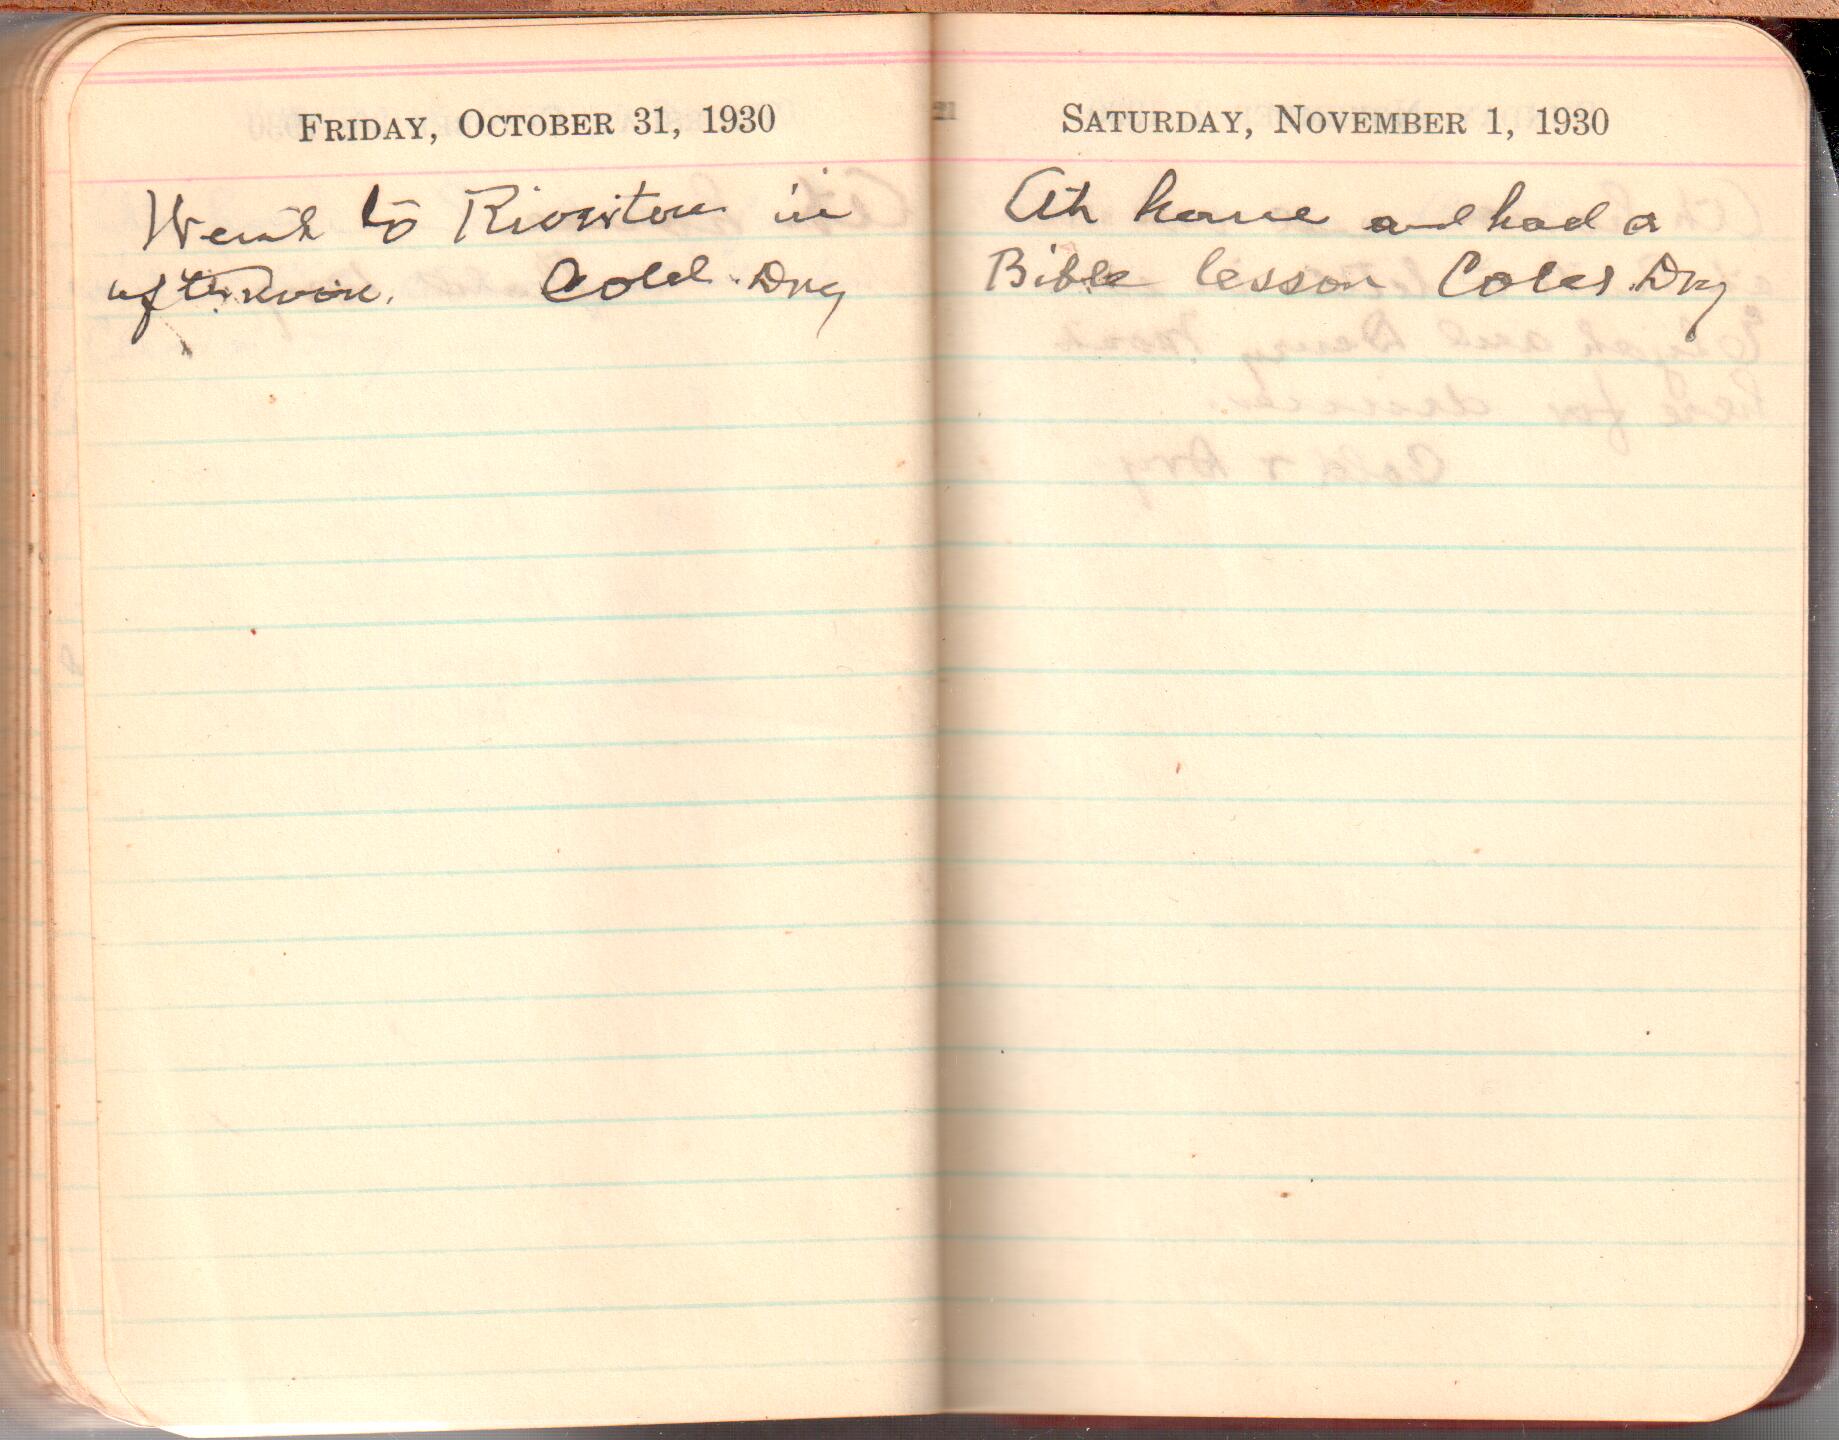 FRIDAY, OCTOBER 31, 1930
Went to Riverton in
afternoon. Cold. Dry
SATURDAY, NOVEMBER 1, 1930
At home and had a
Bible lesson Cold. Dry